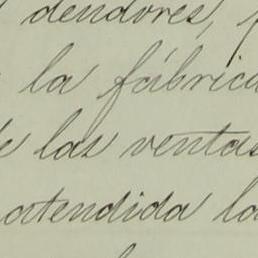 dendores,
la fábrica
de las ventas
atendida la